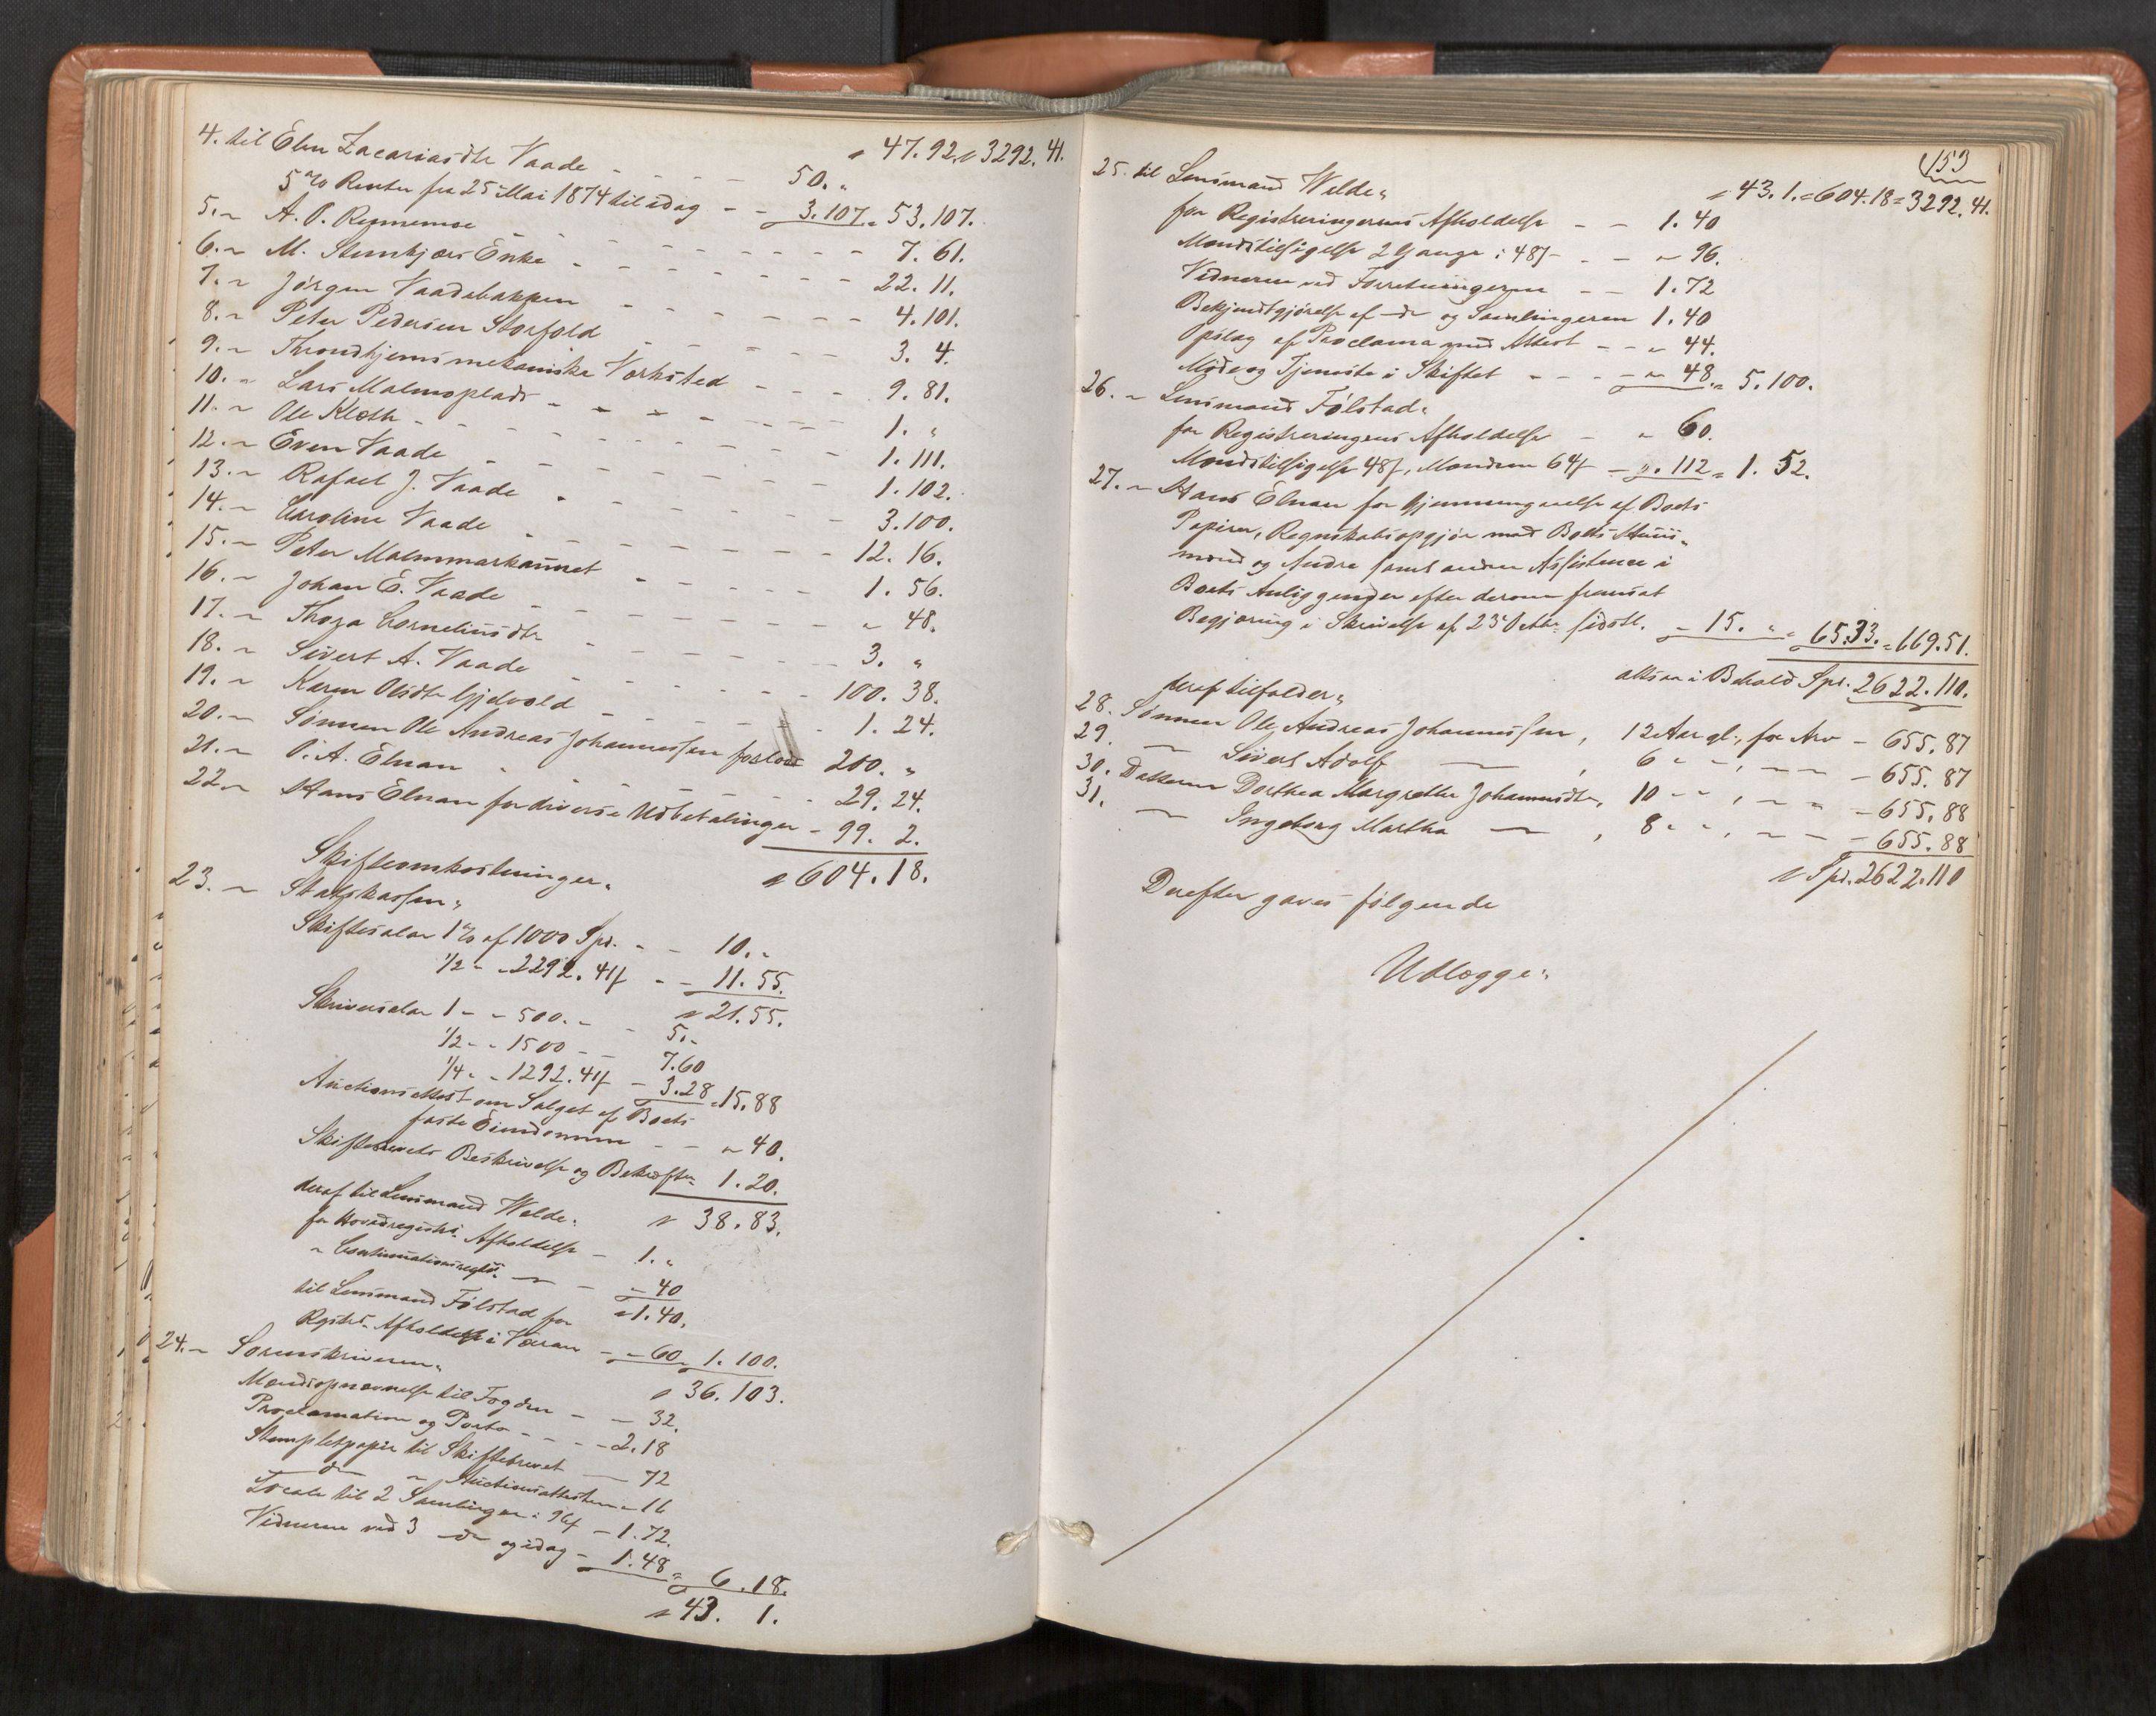 4. til Elen Zacariasdtr Vaade - - - " 47.92. " 3292. 41.
50. "
5 % Renter fra 25 Mai 1874 til idag - - 3.107 = 53.107.
5. " A. P. Rennemoe - - - 7. 61.
6. " M. Stenkjærs Enke - - - 22. 11.
7. " Jørgen Vaadebakken - - - 4.101.
8. " Peter Pedersen Storfold - - - 3. 4.
9. " Throndhjems mekaniske Værksted - - - 9. 81.
10. " Lars Malmoplads - - - 1. "
11. " Ole Kleth - - - 1. 111.
12. " Even Vaade - - - 1. 102.
13. " Rafael J. Vaade - - - 3.100.
14. " Caroline Vaade - - - 12. 16.
15. " Peter Malmmarkaunet - - - 1. 56.
16. " Johan E. Vaade - - - " 48.
17. " Thora Corneliusdtr - - - 3. "
18. " Sivert A. Vaade - - - 100. 38.
19. " Karen Olsdtr Gjedvold - - - 1. 24.
20. " Sønnen Ole Andreas Johannessen forlods 200. "
21. " P. A. Elnan - - - 29. 24.
22. " Hans Elnan for diverse Udbetalinger - 99. 2.
" 604.18.
Skifteomkostninger.
23. " Statskassen:
Skiftesalær 1 % af 1000 Spd. - - 10. "
1/2 " " 2292. 41 ß - - 11. 55.
" 21. 55.
Skriversalær 1 " " 500. " - 5. "
1/2 " " 1500 - - 7.60
1/4 " " 1292. 41 ß - 3.28 = 15. 88
Auctionsattest om Salget af Boets
faste Eiendomme - - " 40.
Skiftebrevets Beskrivelse og Bekræfte: 1. 20.
" 38. 83.
deraf til Lensmand Welde:
for Hovedregistr. Afholdelse - 1. "
" Continuationsregist. - " 40
" 1. 40.
til Lensmand Følstad for
Registr. Afholdelse i Væran - " 60 1. 100.
" 36. 103.
24. " Sorenskriveren:
Mændsopnævnelse til Fogden - - 32.
Proclamation og Porto - - - 2.18
Stempletpapir til Skiftebrevet - 72
do " Auctionsattesten " 16
Locale til 2 Samlinger à 96 ß - 1. 72.
Vidnerne ved 3 do og idag - 1. 48 = 6. 18.
" 43. 1.
153
25. til Lensmand Welde: " 43. 1. = 604.18 = 3292. 41.
for Registreringernes Afholdelse - - 1. 40
Mændstilsigelse 2 Gange à 48 ß - - " 96.
Vidnerne ved Forretningerne - - 1. 72
Bekjendtgjørelse af do og Samlingerne 1. 40
Opslag af Proclama med Attest - - " 44.
Møde og Tjeneste i Skiftet - - - " 48 = 5. 100.
26. " Lensmand Følstad:
for Registreringens Afholdelse - " 60.
Mændstilsigelse 48 ß, Mændene 64 ß - " 112 = 1. 52.
27. " Hans Elnan for Gjennemgaaelse af Boets
Papirer, Regnskabsopgjør med Boets
mænd og Andre samt anden Assistence i
Boets Anliggender efter derom fremsat
Begjæring i Skrivelse af 23 Octbr. sidstl. - 15. " = 65.33. = 669.51.
altsaa i Behold Spd. 2622. 110.
deraf tilfalder:
28. Sønnen Ole Andreas Johannessen, 12 Aar gl., for Arv - 655. 87
29. " Sivert Adolf " , 6 " " , " " - 655. 87
30. Datteren Dorthea Margrethe Johannesdtr, 10 " " , " " - 655. 88
31. " Ingeborg Martha " , 8 " " , " " - 655. 88
" Spd. 2622. 110
Derefter gaves følgende
Udlægge: